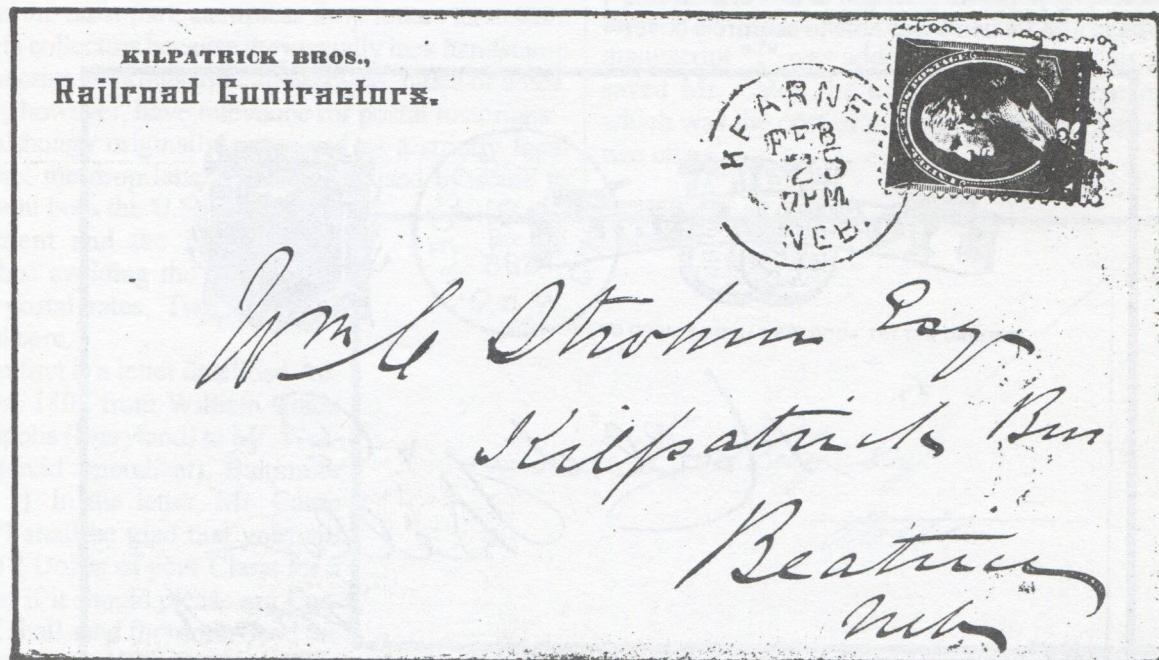 KILPATRICK BROS.,
Railroad Contractors.
KEARNEY
FEB
25
7PM
NEB.
Wm C Strohm Esq
Kilpatrick Bros
Beatrice
Neb